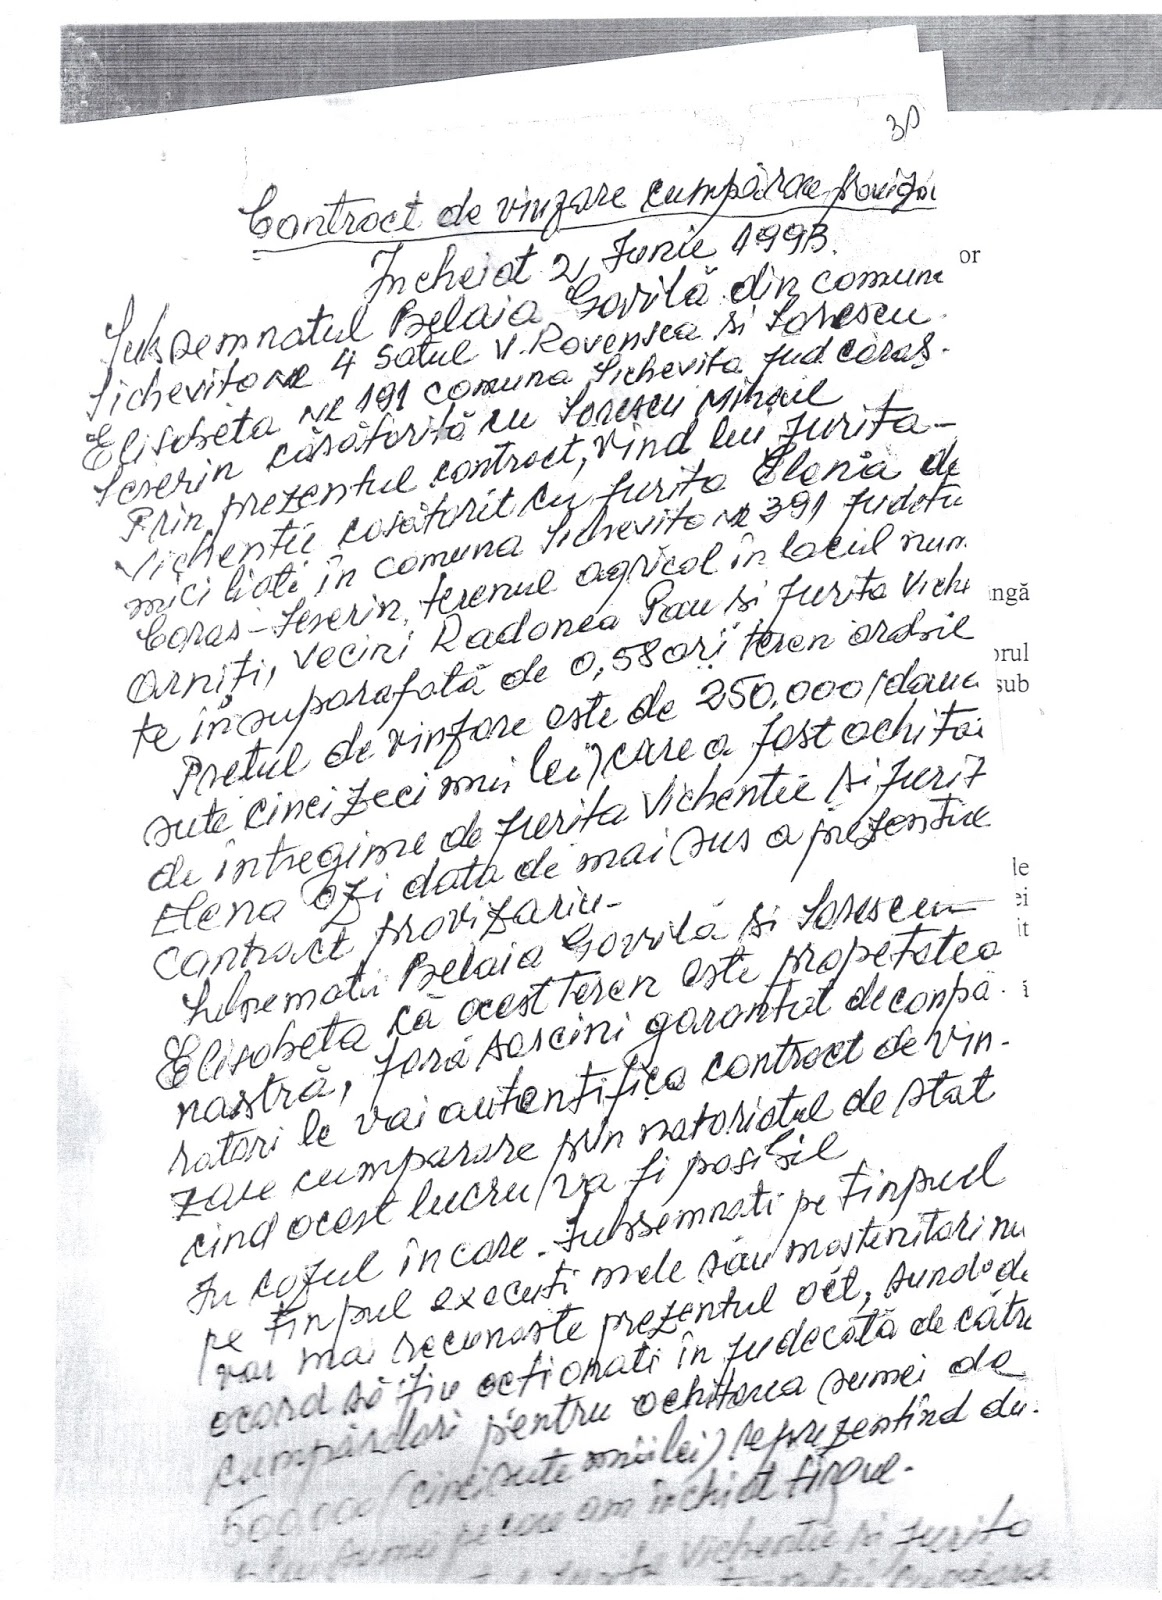 30
Contract de vinzare cumpărare proviza
Incheiat 2, Iunie 1993.
or
Subsemnatul Belaia Gavrilă din comuna
Sichevita nr 4 satul V. Ravensca si Sorescu
Elisabeta nr 191 comuna Sichevita jud caraș-
Severin căsătorită cu Sorescu Mihail
Prin prezentul contract, vind lui Jurita-
Vichentie casătorit cu Jurita Elena do
miciliati în comuna Sichevita nr 391 judetu
Caras-Severin, terenul agricol în locul num.
Arniți, vecini Radonea Pau si Jurita Viche
ngă
te în suparafată de 0,58 ari teren arabil
orul
Pretul de vinzare este de 250.000 /doua
sub
sute cincizeci mii lei) care a fost achitai
de întregime de Jurita Vichentie si Jurit
Elena azi data de mai sus a prezentul
le
contract provizariu-
ei
Subsematii Belaia Gavrilă si Sorescu
it
Elisabeta că acest teren este propetatea
nastră, fară sarcini garantat de cumpă-
ratori le vai autentifica contract de vin-
zare cumparare prin notariatul de stat
cind acest lucru va fi posibil
In cazul în care. Subsemnati pe timpul
pe timpul executi mele său mostenitori nu
var mai recunaste prezentul act, sund de
acord să fiu actionati în judecată de către
cumpărători pientru achitarea sumei de
500.000 (cincisute mii lei) reprezentînd du-
blu sumei pe care am închiat tirgul.
Jurita Vichentie si Jurita